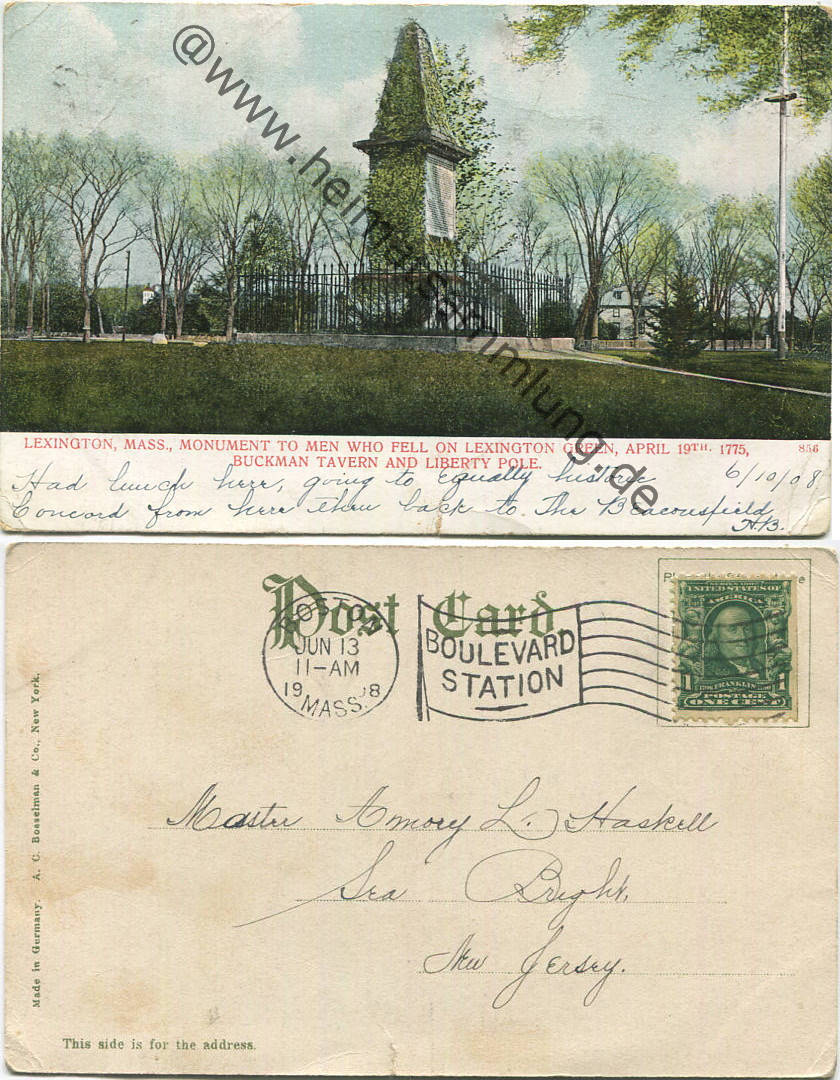 @www.heimatsammlung.de
LEXINGTON, MASS., MONUMENT TO MEN WHO FELL ON LEXINGTON GREEN, APRIL 19TH. 1775, 856
BUCKMAN TAVERN AND LIBERTY POLE.
Had lunch here, going to equally historic 6/10/08
Concord from here then back to The Beaconsfield
H.B.
Post Card
BOSTON
JUN 13
11-AM
19 '08
MASS.
BOULEVARD
STATION
SERIES 1902
UNITED STATES OF
AMERICA
FRANKLIN
1 1
POSTAGE
ONE CENT
Master Amory L. Haskell
Sea Bright,
New Jersey.
Made in Germany. A. C. Bosselman & Co., New York.
This side is for the address.